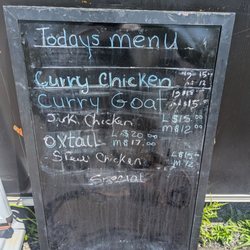 Todays menu
Curry Chicken
Curry Goat
Jerk Chicken L$15.00
M$12.00
oxtail L$20.00
M$17.00
Stew Chicken L$15.00
M12
Special